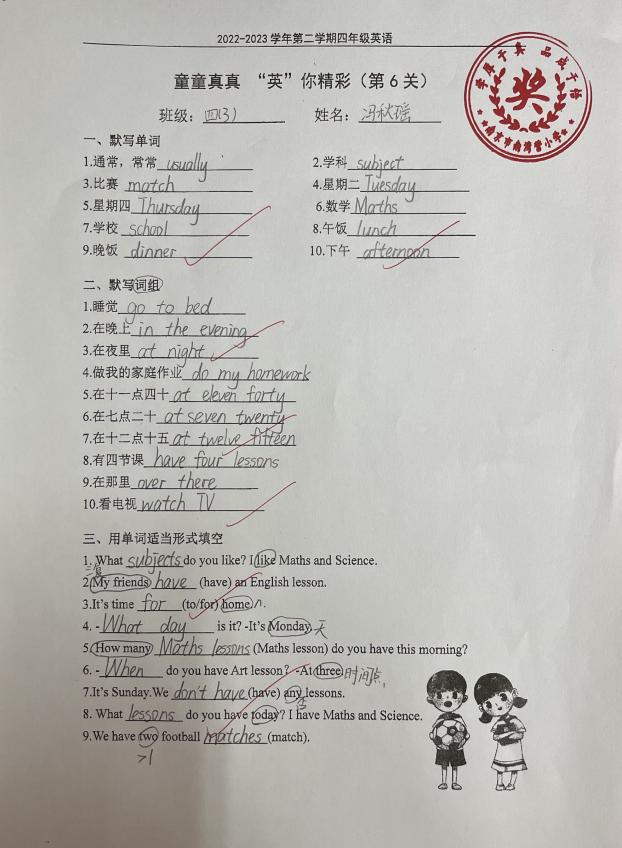 2022-2023学年第二学期四年级英语
学厚于真 品成于悟
奖
南京市南湾营小学
童童真真 “英”你精彩（第6关）
班级：四(3) 姓名：冯秋瑶
一、默写单词
1.通常，常常 usually 2.学科 subject
3.比赛 match 4.星期二 Tuesday
5.星期四 Thursday 6.数学 Maths
7.学校 school 8.午饭 lunch
9.晚饭 dinner 10.下午 afternoon
二、默写词组
1.睡觉 go to bed
2.在晚上 in the evening
3.在夜里 at night
4.做我的家庭作业 do my homework
5.在十一点四十 at eleven forty
6.在七点二十 at seven twenty
7.在十二点十五 at twelve fifteen
8.有四节课 have four lessons
9.在那里 over there
10.看电视 watch TV
三、用单词适当形式填空
1. What subjects do you like? I like Maths and Science.
2.My friends have (have) an English lesson.
3.It's time for (to/for) home n.
4. -What day is it? -It's Monday. 天
5.How many Maths lessons (Maths lesson) do you have this morning?
6. -When do you have Art lesson? -At three 时间点.
7.It's Sunday.We don't have (have) any lessons.
否
8. What lessons do you have today? I have Maths and Science.
9.We have two football matches (match).
>1